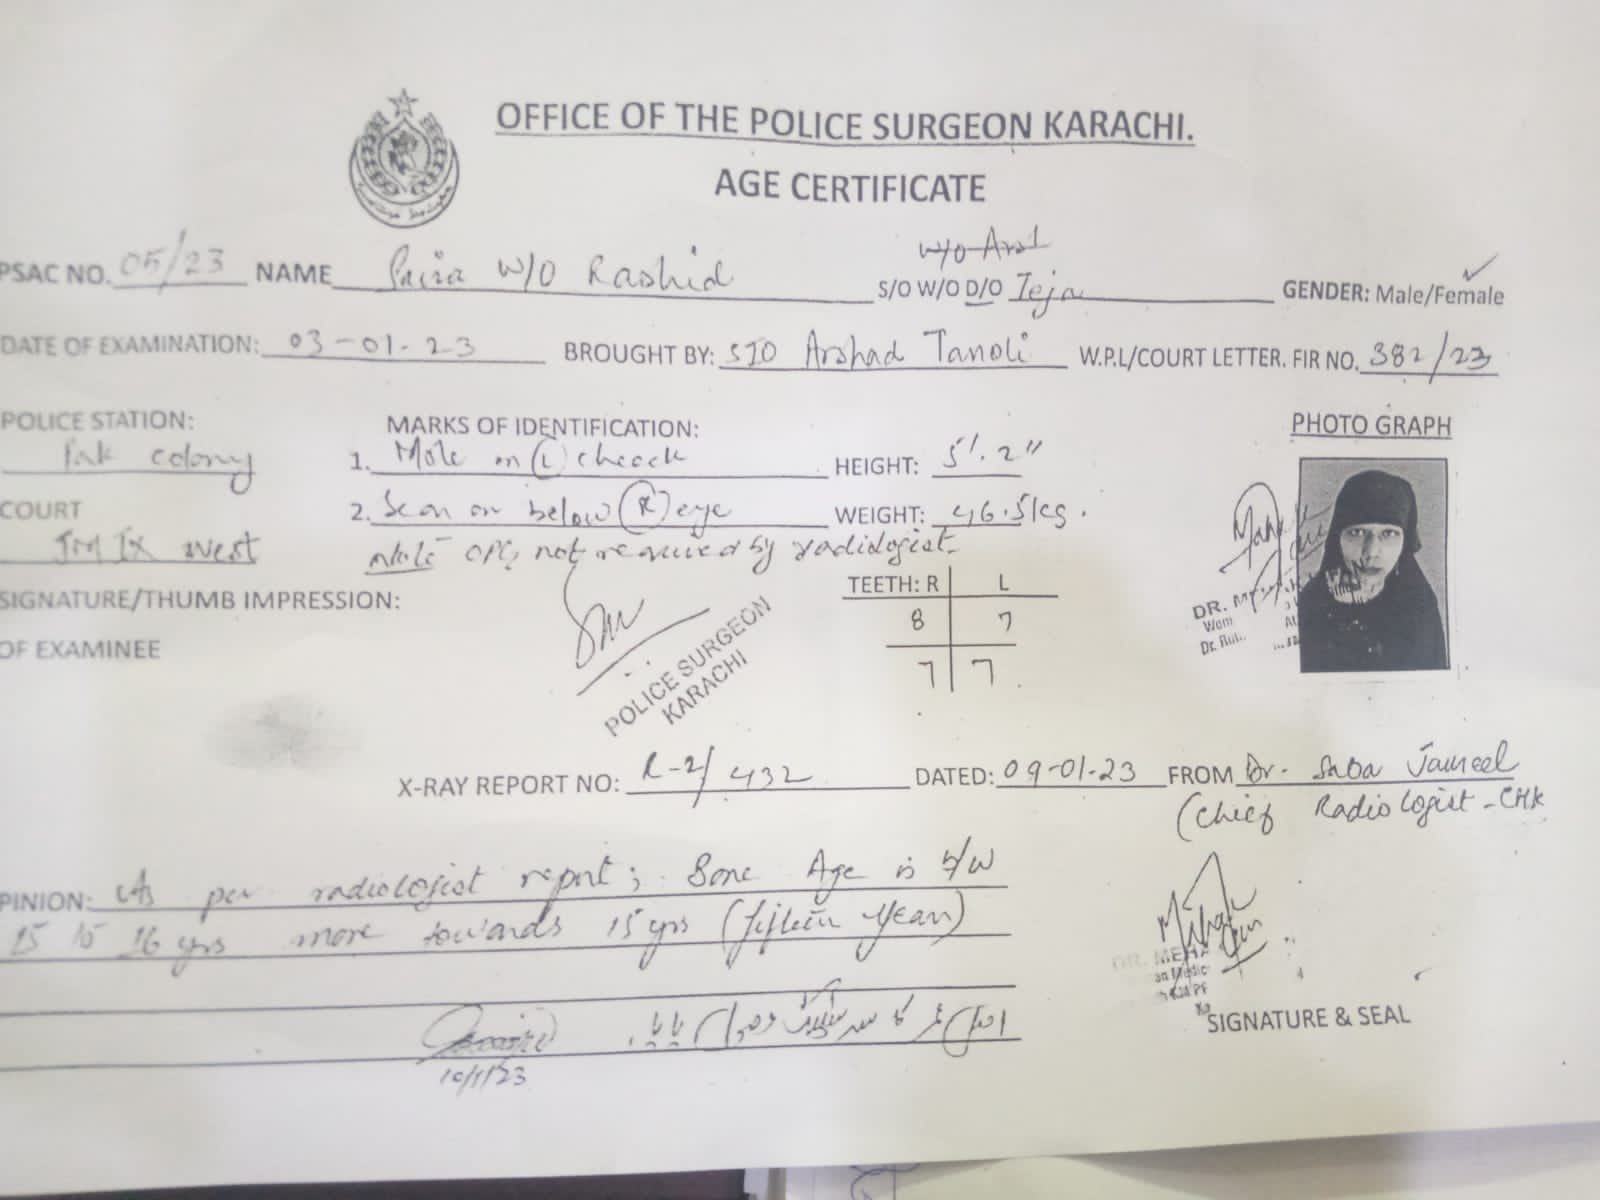 OFFICE OF THE POLICE SURGEON KARACHI.
AGE CERTIFICATE
PSAC NO. 05/23 NAME Saira W/O Rashid S/O W/O D/O Teja GENDER: Male/Female
W/O
DATE OF EXAMINATION: 03-01-23 BROUGHT BY: SIO Arshad Tanoli W.P.L/COURT LETTER. FIR NO. 382/23
POLICE STATION: MARKS OF IDENTIFICATION: PHOTO GRAPH
Pak colony 1. Mole on (L) cheeck HEIGHT: 5'.2"
COURT 2. Scar on below (R) eye WEIGHT: 46.5kg.
JM IX west
Note OPG not required by radiologist.
SIGNATURE/THUMB IMPRESSION: TEETH: R L
OF EXAMINEE 8 7
7 7
POLICE SURGEON
KARACHI
DR.
X-RAY REPORT NO: R-2/432 DATED: 09-01-23 FROM Dr. Saba Jameel
(Chief Radiologist-CHK
PINION: As per radiologist report; Bone Age is b/w
15 to 16 yrs more towards 15 yrs (fifteen year)
DR. MEHA
اصل عمر کا سرٹیفکیٹ وصول پایا
10/1/23
SIGNATURE & SEAL